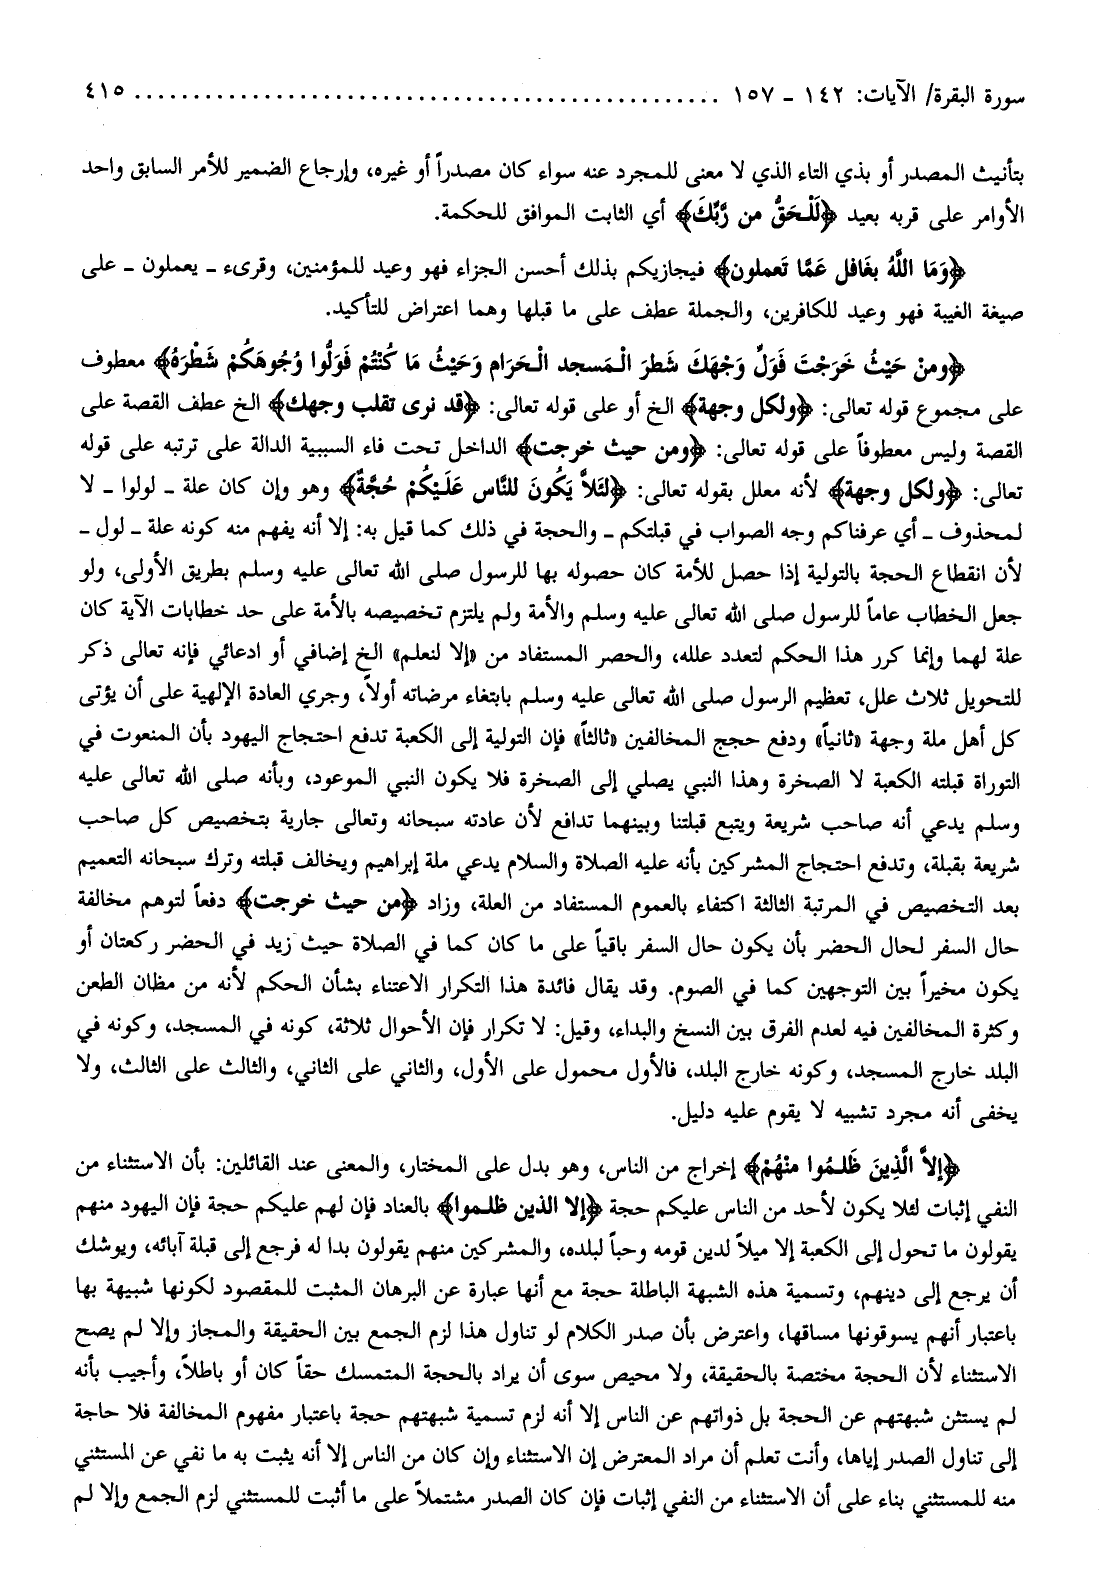 سورة البقرة/ الآيات: ١٤٢ ـ ١٥٧ ................................................ ٤١٥
بتأنيث المصدر أو بذي التاء الذي لا معنى للمجرد عنه سواء كان مصدراً أو غيره، وإرجاع الضمير للأمر السابق واحد
الأوامر على قربه بعيد ﴿لَلْحَقُّ من رَّبِّكَ﴾ أي الثابت الموافق للحكمة.
﴿وَمَا اللَّهُ بِغَافل عَمَّا تَعملون﴾ فيجازيكم بذلك أحسن الجزاء فهو وعيد للمؤمنين، وقرىء ـ يعملون ـ على
صيغة الغيبة فهو وعيد للكافرين، والجملة عطف على ما قبلها وهما اعتراض للتأكيد.
﴿ومنْ حَيْثُ خَرَجْتَ فَوَلِّ وَجْهَكَ شَطرَ الْمَسجد الْحَرَام وَحَيْثُ مَا كُنْتُمْ فَوَلُّوا وُجُوهَكُمْ شَطْرَهُ﴾ معطوف
على مجموع قوله تعالى: ﴿ولكل وجهة﴾ الخ أو على قوله تعالى: ﴿قد نرى تقلب وجهك﴾ الخ عطف القصة على
القصة وليس معطوفاً على قوله تعالى: ﴿ومن حيث خرجت﴾ الداخل تحت فاء السببية الدالة على ترتبه على قوله
تعالى: ﴿ولكل وجهة﴾ لأنه معلل بقوله تعالى: ﴿لئَلاَّ يَكُونَ للنَّاس عَلَيْكُمْ حُجَّةٌ﴾ وهو وإن كان علة ـ لولوا ـ لا
لمحذوف ـ أي عرفناكم وجه الصواب في قبلتكم ـ والحجة في ذلك كما قيل به: إلا أنه يفهم منه كونه علة ـ لول ـ
لأن انقطاع الحجة بالتولية إذا حصل للأمة كان حصوله بها للرسول صلى الله تعالى عليه وسلم بطريق الأولى، ولو
جعل الخطاب عاماً للرسول صلى الله تعالى عليه وسلم والأمة ولم يلتزم تخصيصه بالأمة على حد خطابات الآية كان
علة لهما وإنما كرر هذا الحكم لتعدد علله، والحصر المستفاد من «إلا لنعلم» الخ إضافي أو ادعائي فإنه تعالى ذكر
للتحويل ثلاث علل، تعظيم الرسول صلى الله تعالى عليه وسلم بابتغاء مرضاته أولاً، وجري العادة الإلهية على أن يؤتى
كل أهل ملة وجهة «ثانياً» ودفع حجج المخالفين «ثالثاً» فإن التولية إلى الكعبة تدفع احتجاج اليهود بأن المنعوت في
التوراة قبلته الكعبة لا الصخرة وهذا النبي يصلي إلى الصخرة فلا يكون النبي الموعود، وبأنه صلى الله تعالى عليه
وسلم يدعي أنه صاحب شريعة ويتبع قبلتنا وبينهما تدافع لأن عادته سبحانه وتعالى جارية بتخصيص كل صاحب
شريعة بقبلة، وتدفع احتجاج المشركين بأنه عليه الصلاة والسلام يدعي ملة إبراهيم ويخالف قبلته وترك سبحانه التعميم
بعد التخصيص في المرتبة الثالثة اكتفاء بالعموم المستفاد من العلة، وزاد ﴿من حيث خرجت﴾ دفعاً لتوهم مخالفة
حال السفر لحال الحضر بأن يكون حال السفر باقياً على ما كان كما في الصلاة حيث زيد في الحضر ركعتان أو
يكون مخيراً بين التوجهين كما في الصوم. وقد يقال فائدة هذا التكرار الاعتناء بشأن الحكم لأنه من مظان الطعن
وكثرة المخالفين فيه لعدم الفرق بين النسخ والبداء، وقيل: لا تكرار فإن الأحوال ثلاثة، كونه في المسجد، وكونه في
البلد خارج المسجد، وكونه خارج البلد، فالأول محمول على الأول، والثاني على الثاني، والثالث على الثالث، ولا
يخفى أنه مجرد تشبيه لا يقوم عليه دليل.
﴿إلاَّ الَّذِينَ ظَلَمُوا منْهُمْ﴾ إخراج من الناس، وهو بدل على المختار، والمعنى عند القائلين: بأن الاستثناء من
النفي إثبات لئلا يكون لأحد من الناس عليكم حجة ﴿إلا الذين ظلموا﴾ بالعناد فإن لهم عليكم حجة فإن اليهود منهم
يقولون ما تحول إلى الكعبة إلا ميلاً لدين قومه وحباً لبلده، والمشركين منهم يقولون بدا له فرجع إلى قبلة آبائه، ويوشك
أن يرجع إلى دينهم، وتسمية هذه الشبهة الباطلة حجة مع أنها عبارة عن البرهان المثبت للمقصود لكونها شبيهة بها
باعتبار أنهم يسوقونها مساقها، واعترض بأن صدر الكلام لو تناول هذا لزم الجمع بين الحقيقة والمجاز وإلا لم يصح
الاستثناء لأن الحجة مختصة بالحقيقة، ولا محيص سوى أن يراد بالحجة المتمسك حقاً كان أو باطلاً، وأجيب بأنه
لم يستثن شبهتهم عن الحجة بل ذواتهم عن الناس إلا أنه لزم تسمية شبهتهم حجة باعتبار مفهوم المخالفة فلا حاجة
إلى تناول الصدر إياها، وأنت تعلم أن مراد المعترض إن الاستثناء وإن كان من الناس إلا أنه يثبت به ما نفي عن المستثني
منه للمستثني بناء على أن الاستثناء من النفي إثبات فإن كان الصدر مشتملاً على ما أثبت للمستثني لزم الجمع وإلا لم